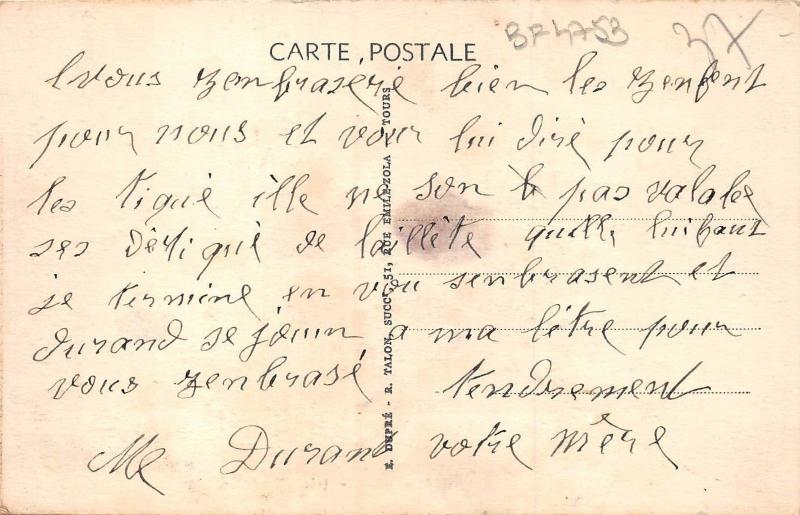 BF4753
37
CARTE POSTALE
vous zenbraserie bien les zenfent
pour nous et vour lui diré pour
les tiqué ille ne son pas valable
ses détiqué de laillète quelle lui faut
je termine en vou senbrasent et
durand se jouin a ma lètre pour
vous zenbrasé tendrement
Me Durand votre mère
E. DUPRÉ - R. TALON, SUCCr, 51, RUE EMILE-ZOLA - TOURS